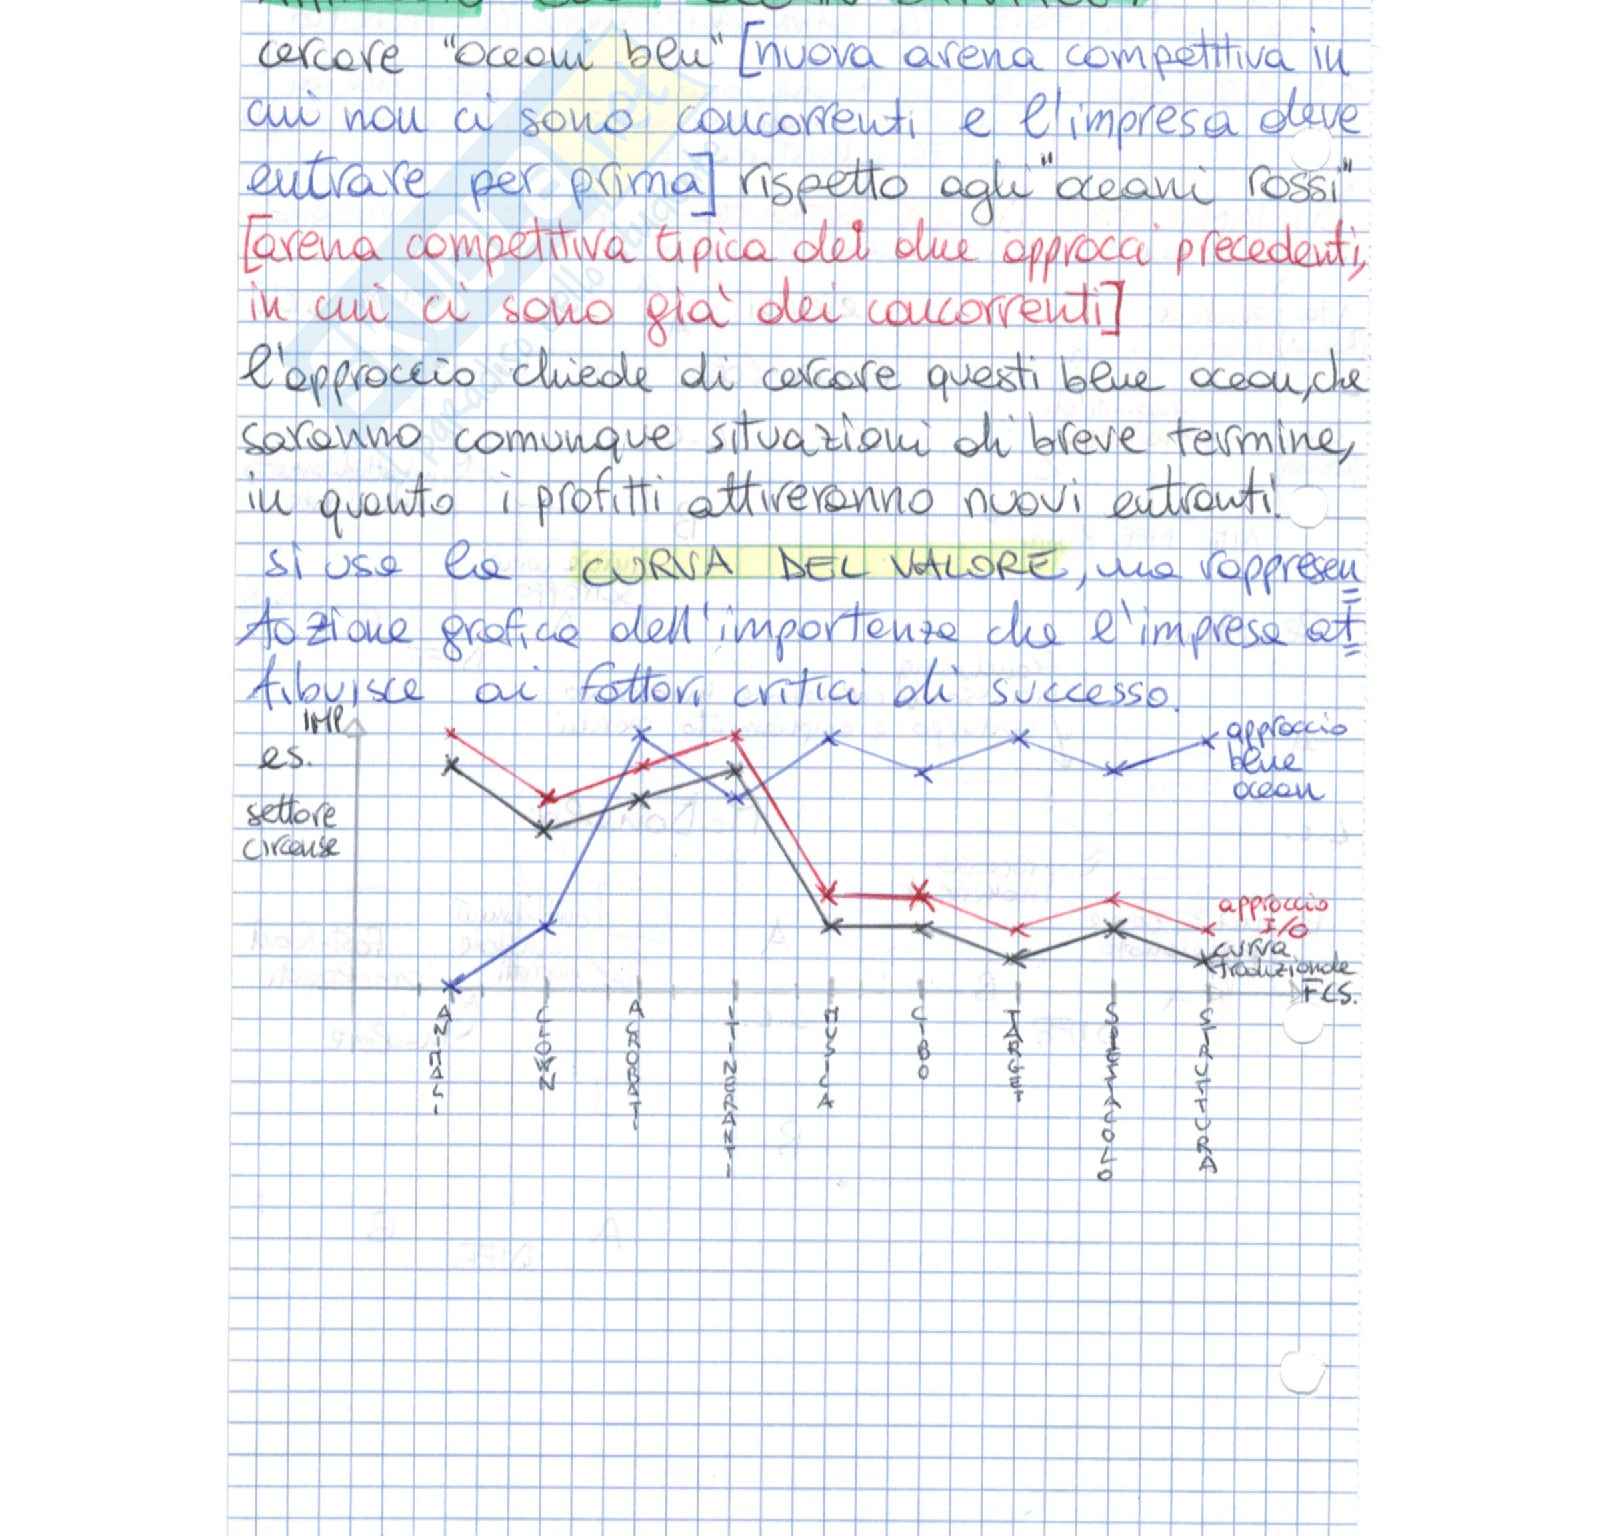 cercare "oceani blu" [nuova arena competitiva in
cui non ci sono concorrenti e l'impresa deve
entrare per prima] rispetto agli "oceani rossi"
[arena competitiva tipica dei due approcci precedenti,
in cui ci sono già dei concorrenti]
l'approccio chiede di cercare questi blue ocean, che
saranno comunque situazioni di breve termine,
in quanto i profitti attireranno nuovi entranti.
si usa la CURVA DEL VALORE, una rappresen
tazione grafica dell'importanza che l'impresa at
tibuisce ai fattori critici di successo.
IMP.
es.
settore
circense
approccio
blue
ocean
approccio
I/O
curva
tradizionale
F.C.S.
ANIMALI
CLOWN
ACROBATI
ITINERANTI
MUSICA
CIBO
TARGET
SPETTACOLO
STRUTTURA